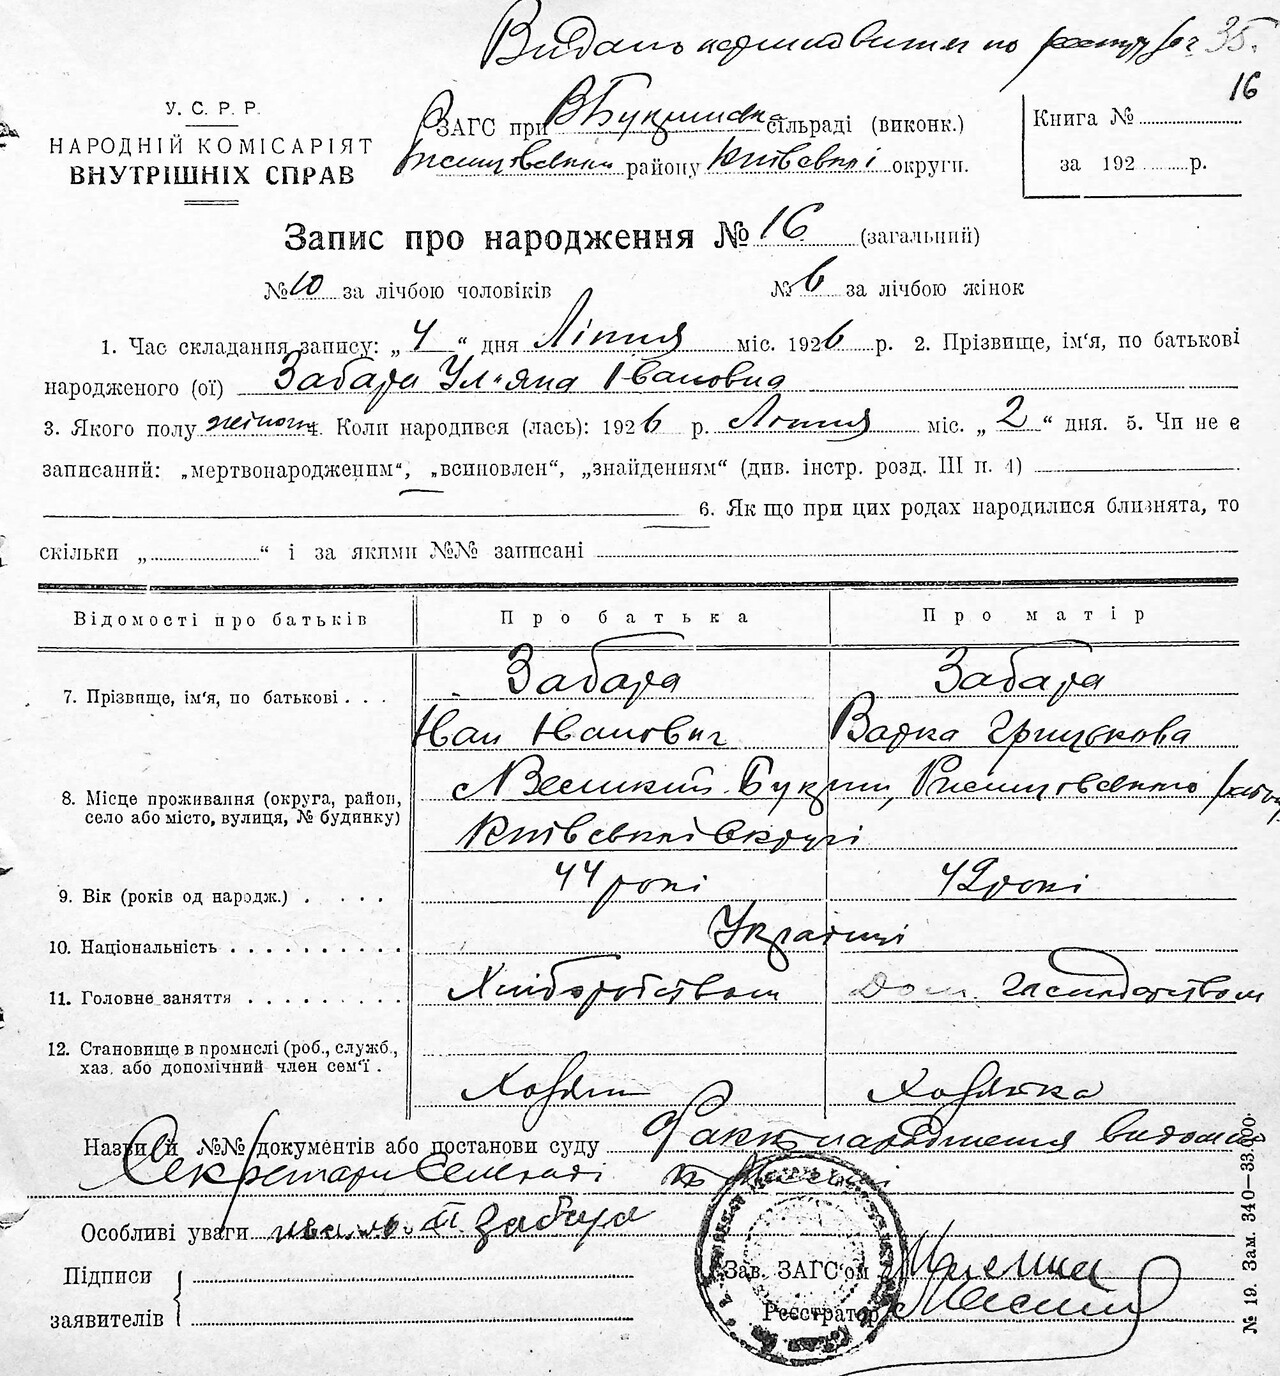 Видано
35.
16
У. С. Р. Р.
НАРОДНІЙ КОМІСАРІЯТ
ВНУТРІШНІХ СПРАВ
ЗАГС при В Букринська сільраді (виконк.)
району Київської округи.
Книга №
за 192 р.
Запис про народження № 16 (загальний)
№ 10 за лічбою чоловіків
№ 6 за лічбою жінок
1. Час складання запису: „4“ дня Липня міс. 1926 р. 2. Прізвище, ім'я, по батькові
народженого (ої) Забара Ул'яна Івановна
3. Якого полу жіночі 4. Коли народився (лась): 1926 р. Липня міс. „2“ дня. 5. Чи не є
записаний: „мертвонародженим“, „всиновлен“, „знайденням“ (див. інстр. розд. III п. 4)
6. Як що при цих родах народилися близнята, то
скільки „ “ і за якими №№ записані
Відомості про батьків
Про батька
Про матір
7. Прізвище, ім'я, по батькові . . .
Забара
Забара
Іван Іванович
Варка Грицькова
8. Місце проживання (округа, район,
село або місто, вулиця, № будинку)
Великий Букрин, Ржищовського
Київської Округи
9. Вік (років од народж.) . . . . .
44 роки
42 роки
10. Національність . . . . . . . . . .
Українці
11. Головне заняття . . . . . . . . .
Хліборобством
Дом. господарством
12. Становище в промислі (роб., служб.,
хаз. або допомічний член сем'ї .
Хозяїн
Хозяйка
Назви й №№ документів або постанови суду Факт народження відомий
Секретарю Сельради
Особливі уваги Забара
Підписи
заявителів
Зав. ЗАГС'ом
Реєстратор
№ 19. Зам. 340—33.000.